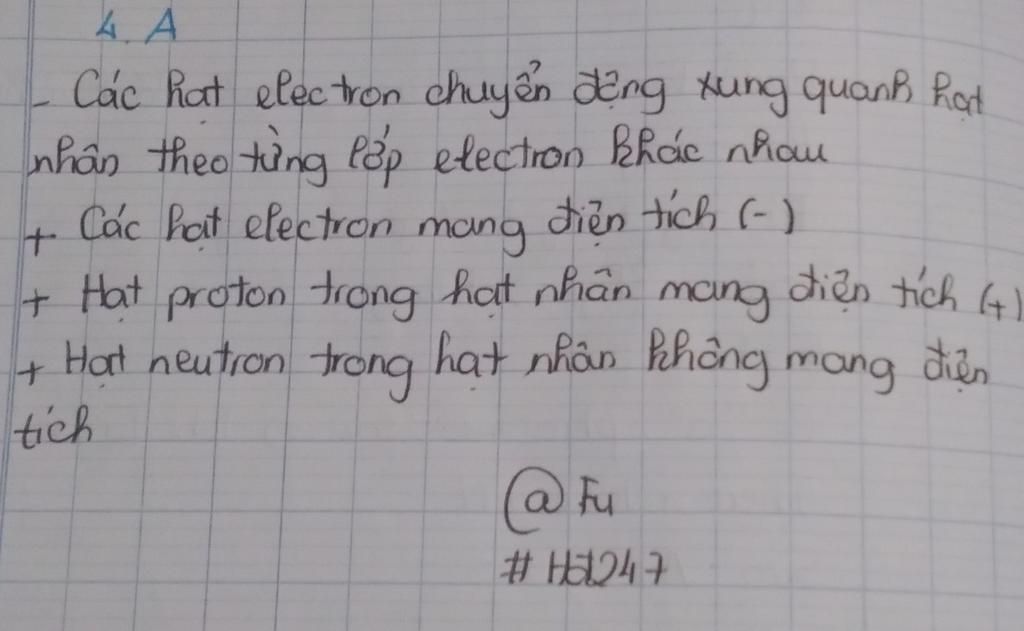 4. A
- Các hạt electron chuyển động xung quanh hạt
nhân theo từng lớp electron khác nhau
+ Các hạt electron mang điện tích (-)
+ Hạt proton trong hạt nhân mang điện tích (+)
+ Hạt neutron trong hạt nhân không mang điện
tích
@ Fu
# Hđ247